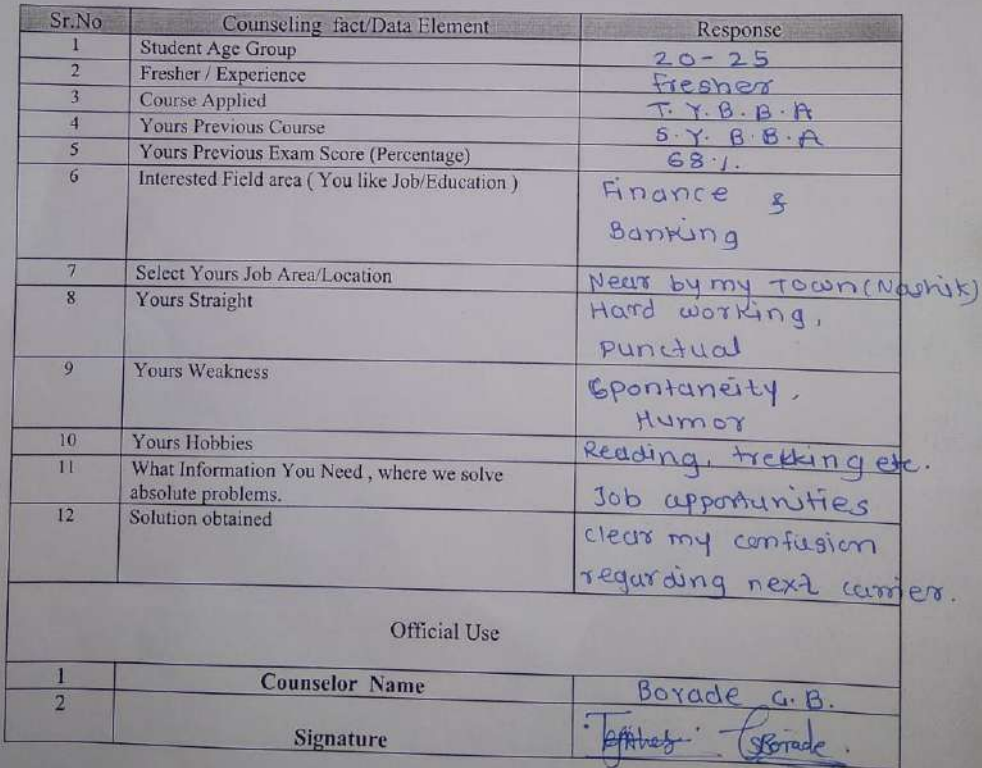 Sr.No Counseling fact/Data Element Response
1 Student Age Group 20-25
2 Fresher / Experience Fresher
3 Course Applied T.Y.B.B.A
4 Yours Previous Course S.Y.B.B.A
5 Yours Previous Exam Score (Percentage) 68%
6 Interested Field area ( You like Job/Education ) Finance &
Banking
7 Select Yours Job Area/Location Near by my Town (Nashik)
8 Yours Straight Hard working,
Punctual
9 Yours Weakness Spontaneity,
Humor
10 Yours Hobbies Reading, trekking etc.
11 What Information You Need , where we solve
absolute problems. Job apportunities
12 Solution obtained clear my confusion
regarding next carrier.
Official Use
1 Counselor Name Borade G.B.
2 Signature GBorade.